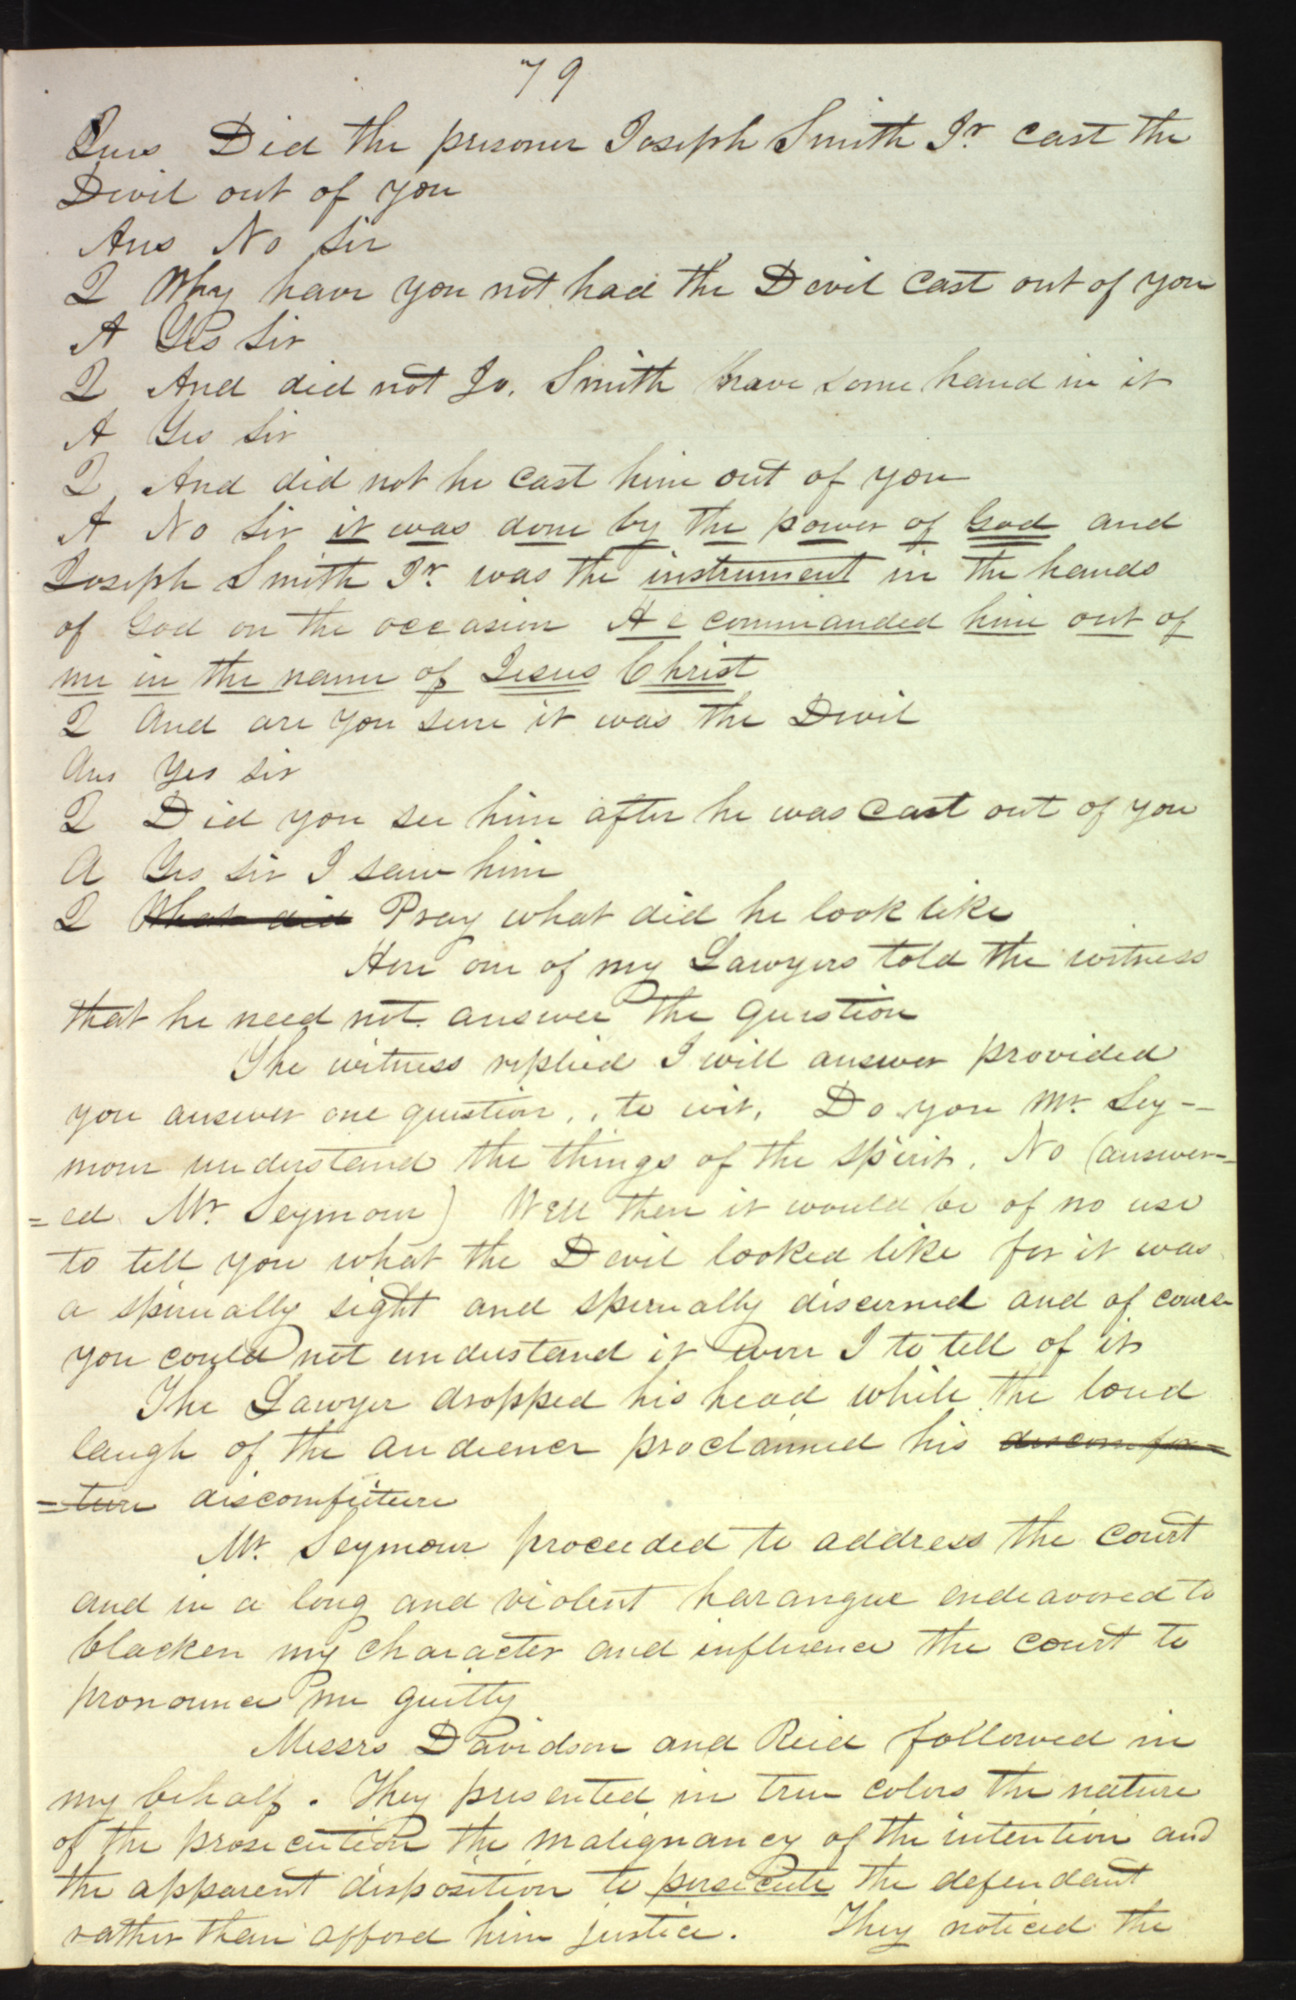 79
Ques Did the prisoner Joseph Smith Jr cast the
Devil out of you
Ans No Sir
Q Why have you not had the Devil cast out of you
A Yes Sir
Q And did not Jo. Smith have some hand in it
A Yes Sir
Q And did not he cast him out of you
A No Sir it was done by the power of God and
Joseph Smith Jr was the instrument in the hands
of God on the occasion He commanded him out of
me in the name of Jesus Christ
Q And are you sure it was the Devil
Ans Yes Sir
Q Did you see him after he was cast out of you
A Yes sir I saw him
Q What did Pray what did he look like
Here one of my Lawyers told the witness
that he need not answer the question
The witness replied I will answer provided
you answer one question, to wit, Do you Mr. Sey-
mour understand the things of the spirit. No (answer=
=ed Mr. Seymour) Well then it would be of no use
to tell you what the Devil looked like for it was
a spirually sight and spirually discerned and of course
you could not understand it were I to tell of it
The Lawyer dropped his head while the loud
laugh of the audience proclaimed his discomfor=
=ture discomfiture
Mr. Seymour proceeded to address the court
and in a long and violent harangue endeavored to
blacken my character and influence the court to
pronounce me guilty
Messrs Davidson and Reid followed in
my behalf. They presented in true colors the nature
of the prosecution the malignancy of the intention and
the apparent disposition to persecute the defendant
rather than afford him justice. They noticed the